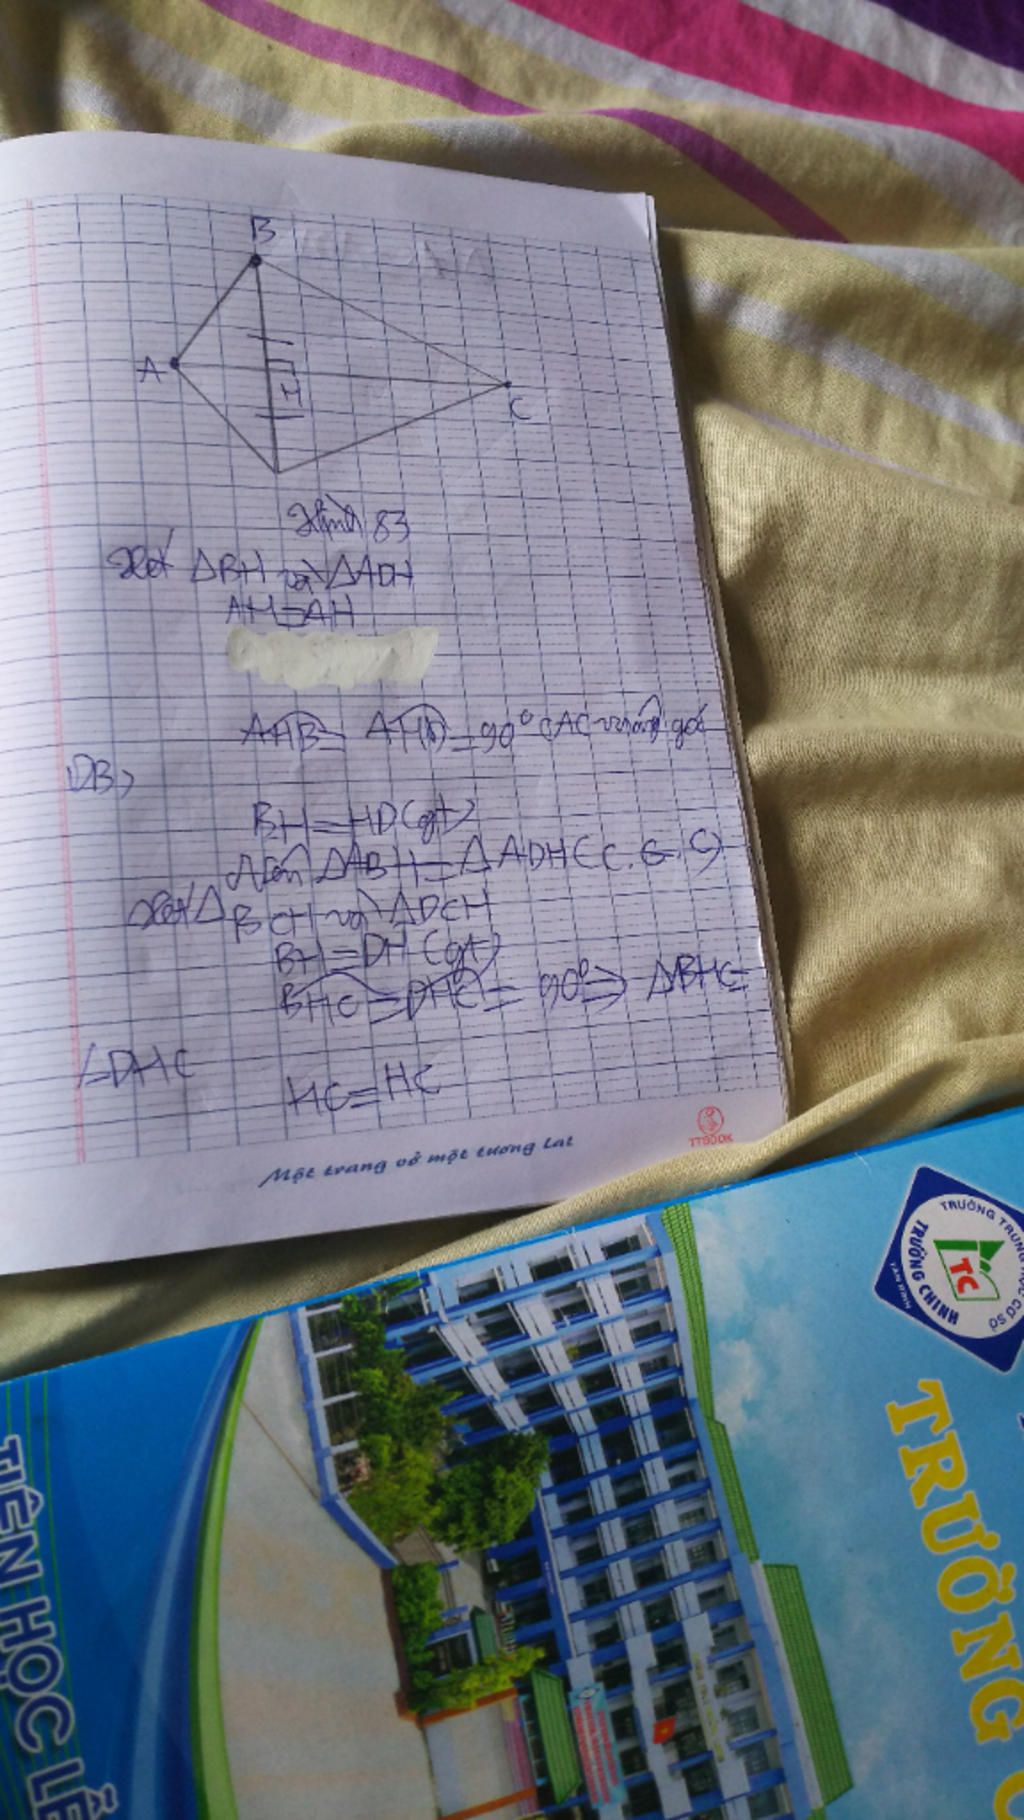 B
A
H
C
Hình 83
Xét ΔBH và ΔADH
AH=AH
AHB = AHD = 90° (AC vuông góc
DB)
BH=HD(gt)
Nên ΔABH=ΔADH(C.G.C)
Xét Δ BCH và ΔDCH
BH=DH(gt)
BHC = DHC = 90° => ΔBHC=
ΔDHC
HC=HC
Một trang vở một tương lai
TTBOOK
TRƯỜNG TRUNG HỌC CƠ SỞ
TRƯỜNG CHINH
TÂN BÌNH
TC
TRƯỜNG C
TIÊN HỌC LỄ